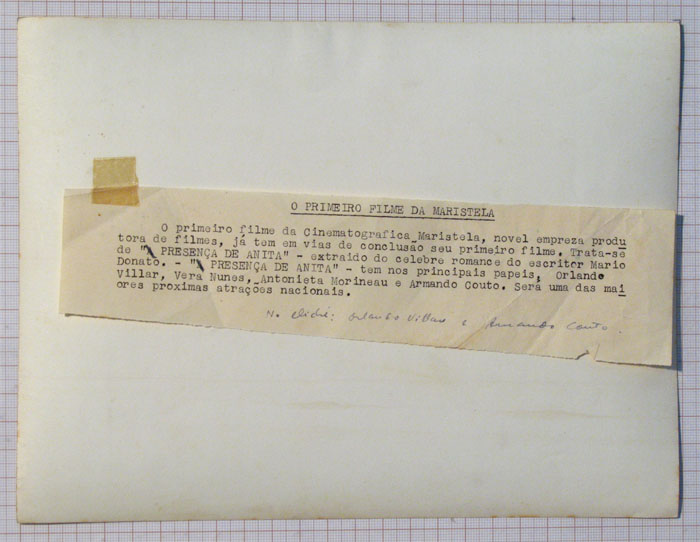 O PRIMEIRO FILME DA MARISTELA
O primeiro filme da Cinematografica Maristela, novel empreza produ
tora de filmes, já tem em vias de conclusão seu primeiro filme. Trata-se
de "A PRESENÇA DE ANITA" - extraido do celebre romance do escritor Mario
Donato. - "A PRESENÇA DE ANITA" - tem nos principais papeis, Orlando
Villar, Vera Nunes, Antonieta Morineau e Armando Couto. Será uma das mai
ores proximas atrações nacionais.
No cliché: Orlando Villar e Armando Couto.